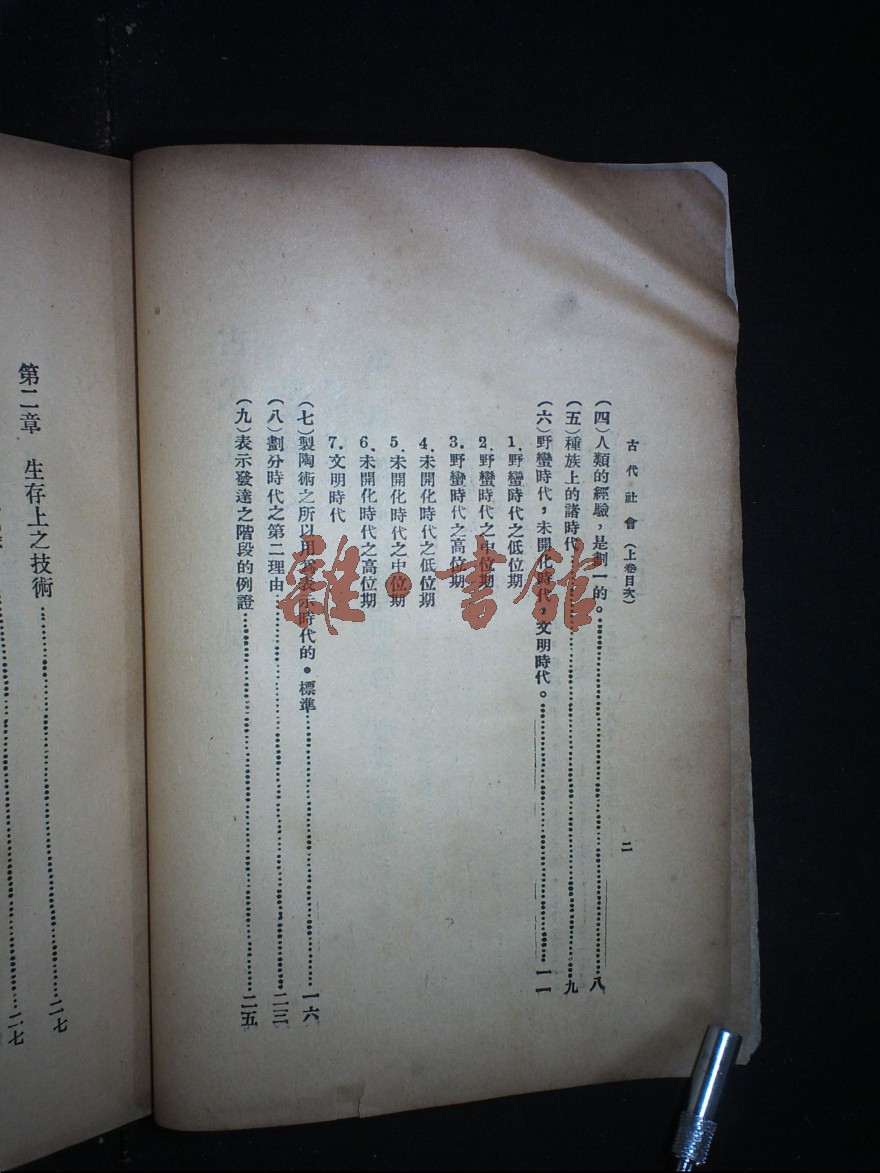 古代社會 (上卷目次)
二
(四)人類的經驗,是劃一的。……八
(五)種族上的諸時代……九
(六)野蠻時代,未開化時代,文明時代。……一一
1.野蠻時代之低位期
2.野蠻時代之中位期
3.野蠻時代之高位期
4.未開化時代之低位期
5.未開化時代之中位期
6.未開化時代之高位期
7.文明時代
(七)製陶術之所以用為表示時代的•標準……一六
(八)劃分時代之第二理由……二三
(九)表示發達之階段的例證……二五
第二章 生存上之技術……二七
……二七
雜·書館